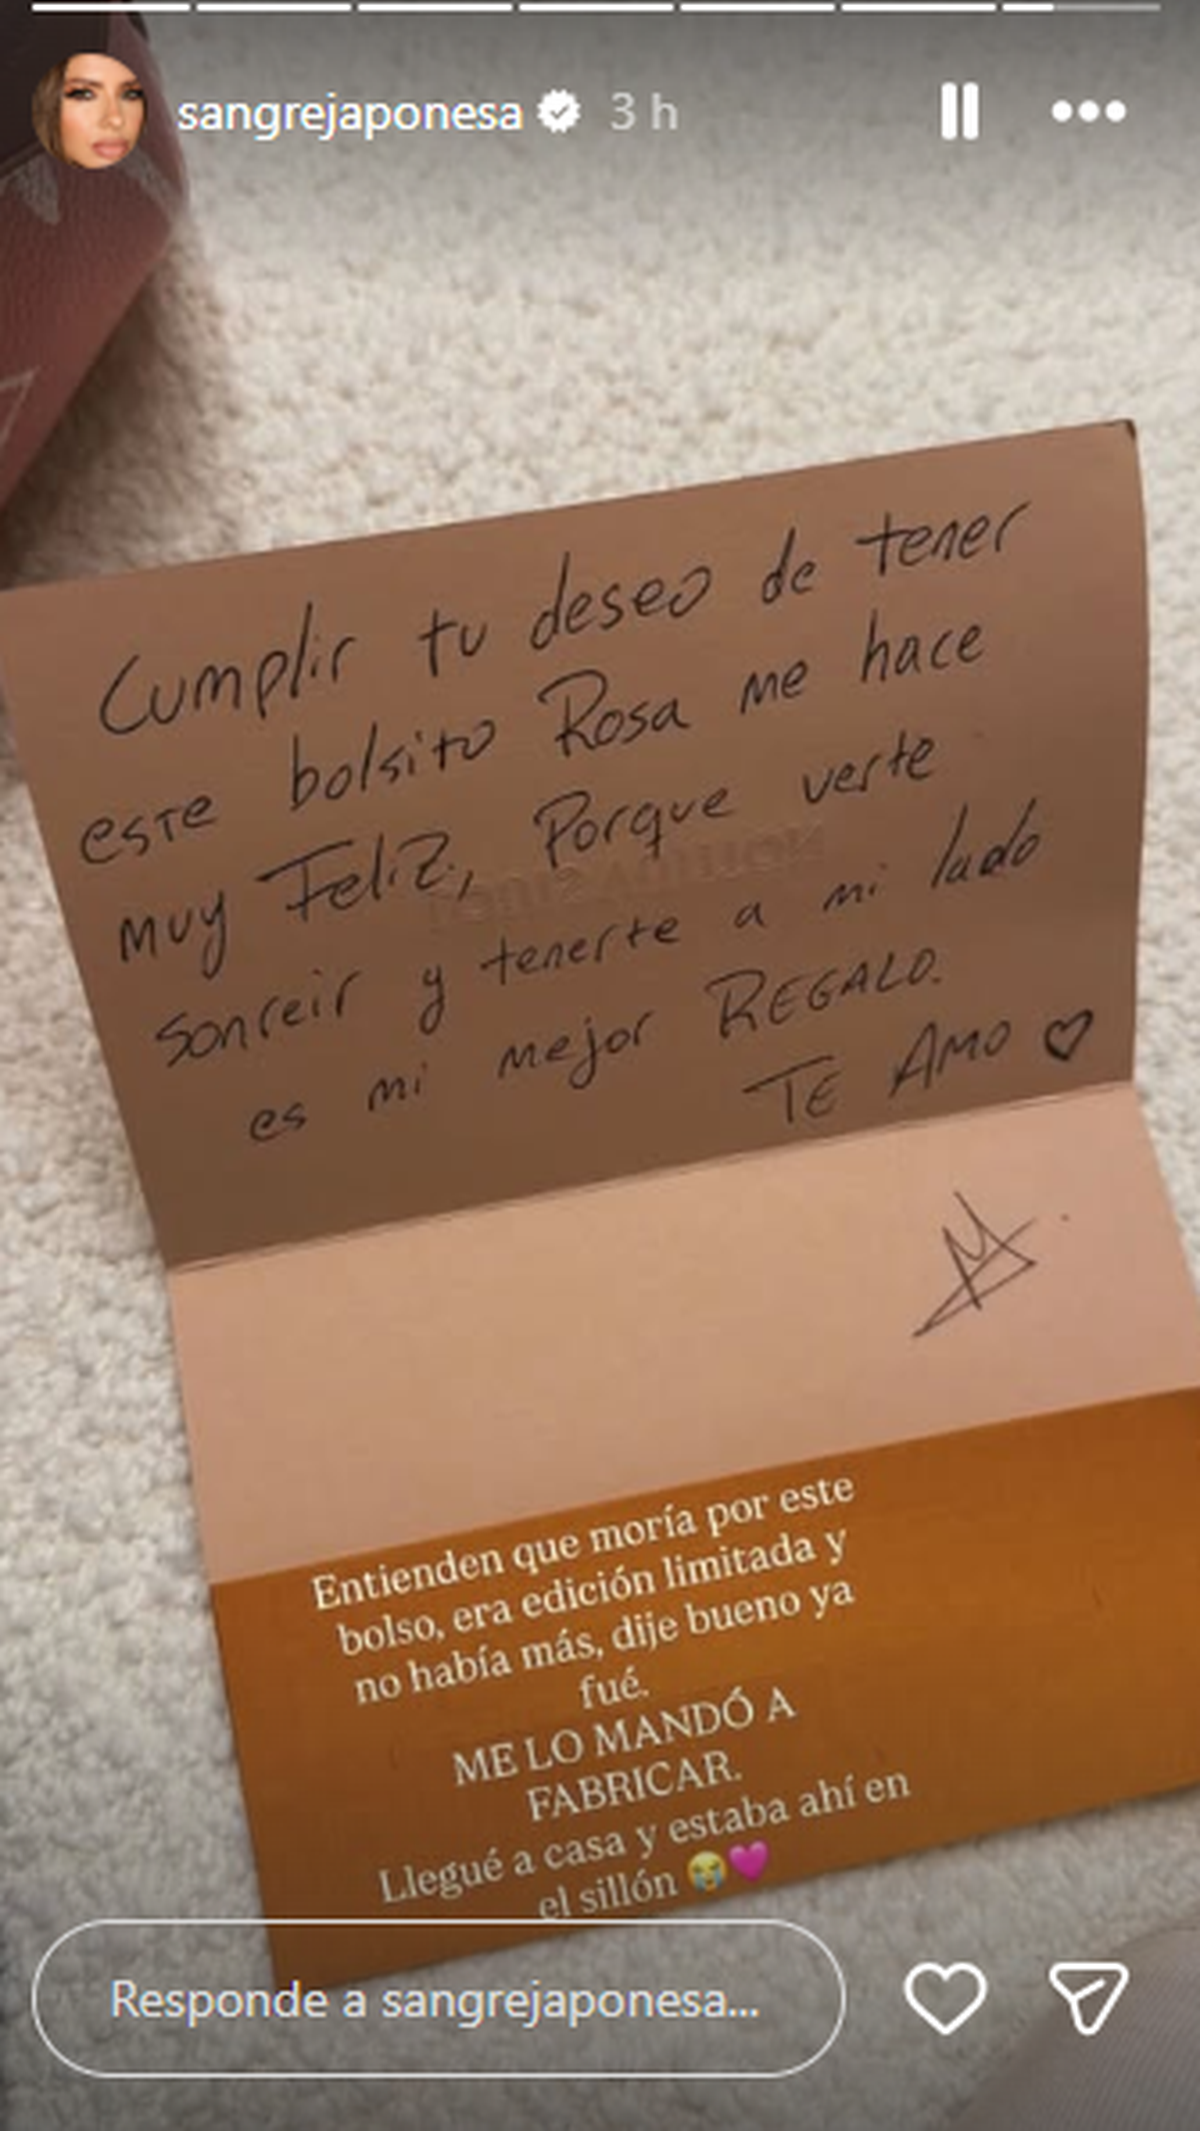 sangrejaponesa 3 h
Cumplir tu deseo de tener
este bolsito Rosa me hace
muy Feliz, Porque verte
sonreir y tenerte a mi lado
es mi mejor REGALO.
TE AMO ♡
Entienden que moría por este
bolso, era edición limitada y
no había más, dije bueno ya
fué.
ME LO MANDÓ A
FABRICAR.
Llegué a casa y estaba ahí en
el sillón 😭💗
Responde a sangrejaponesa...